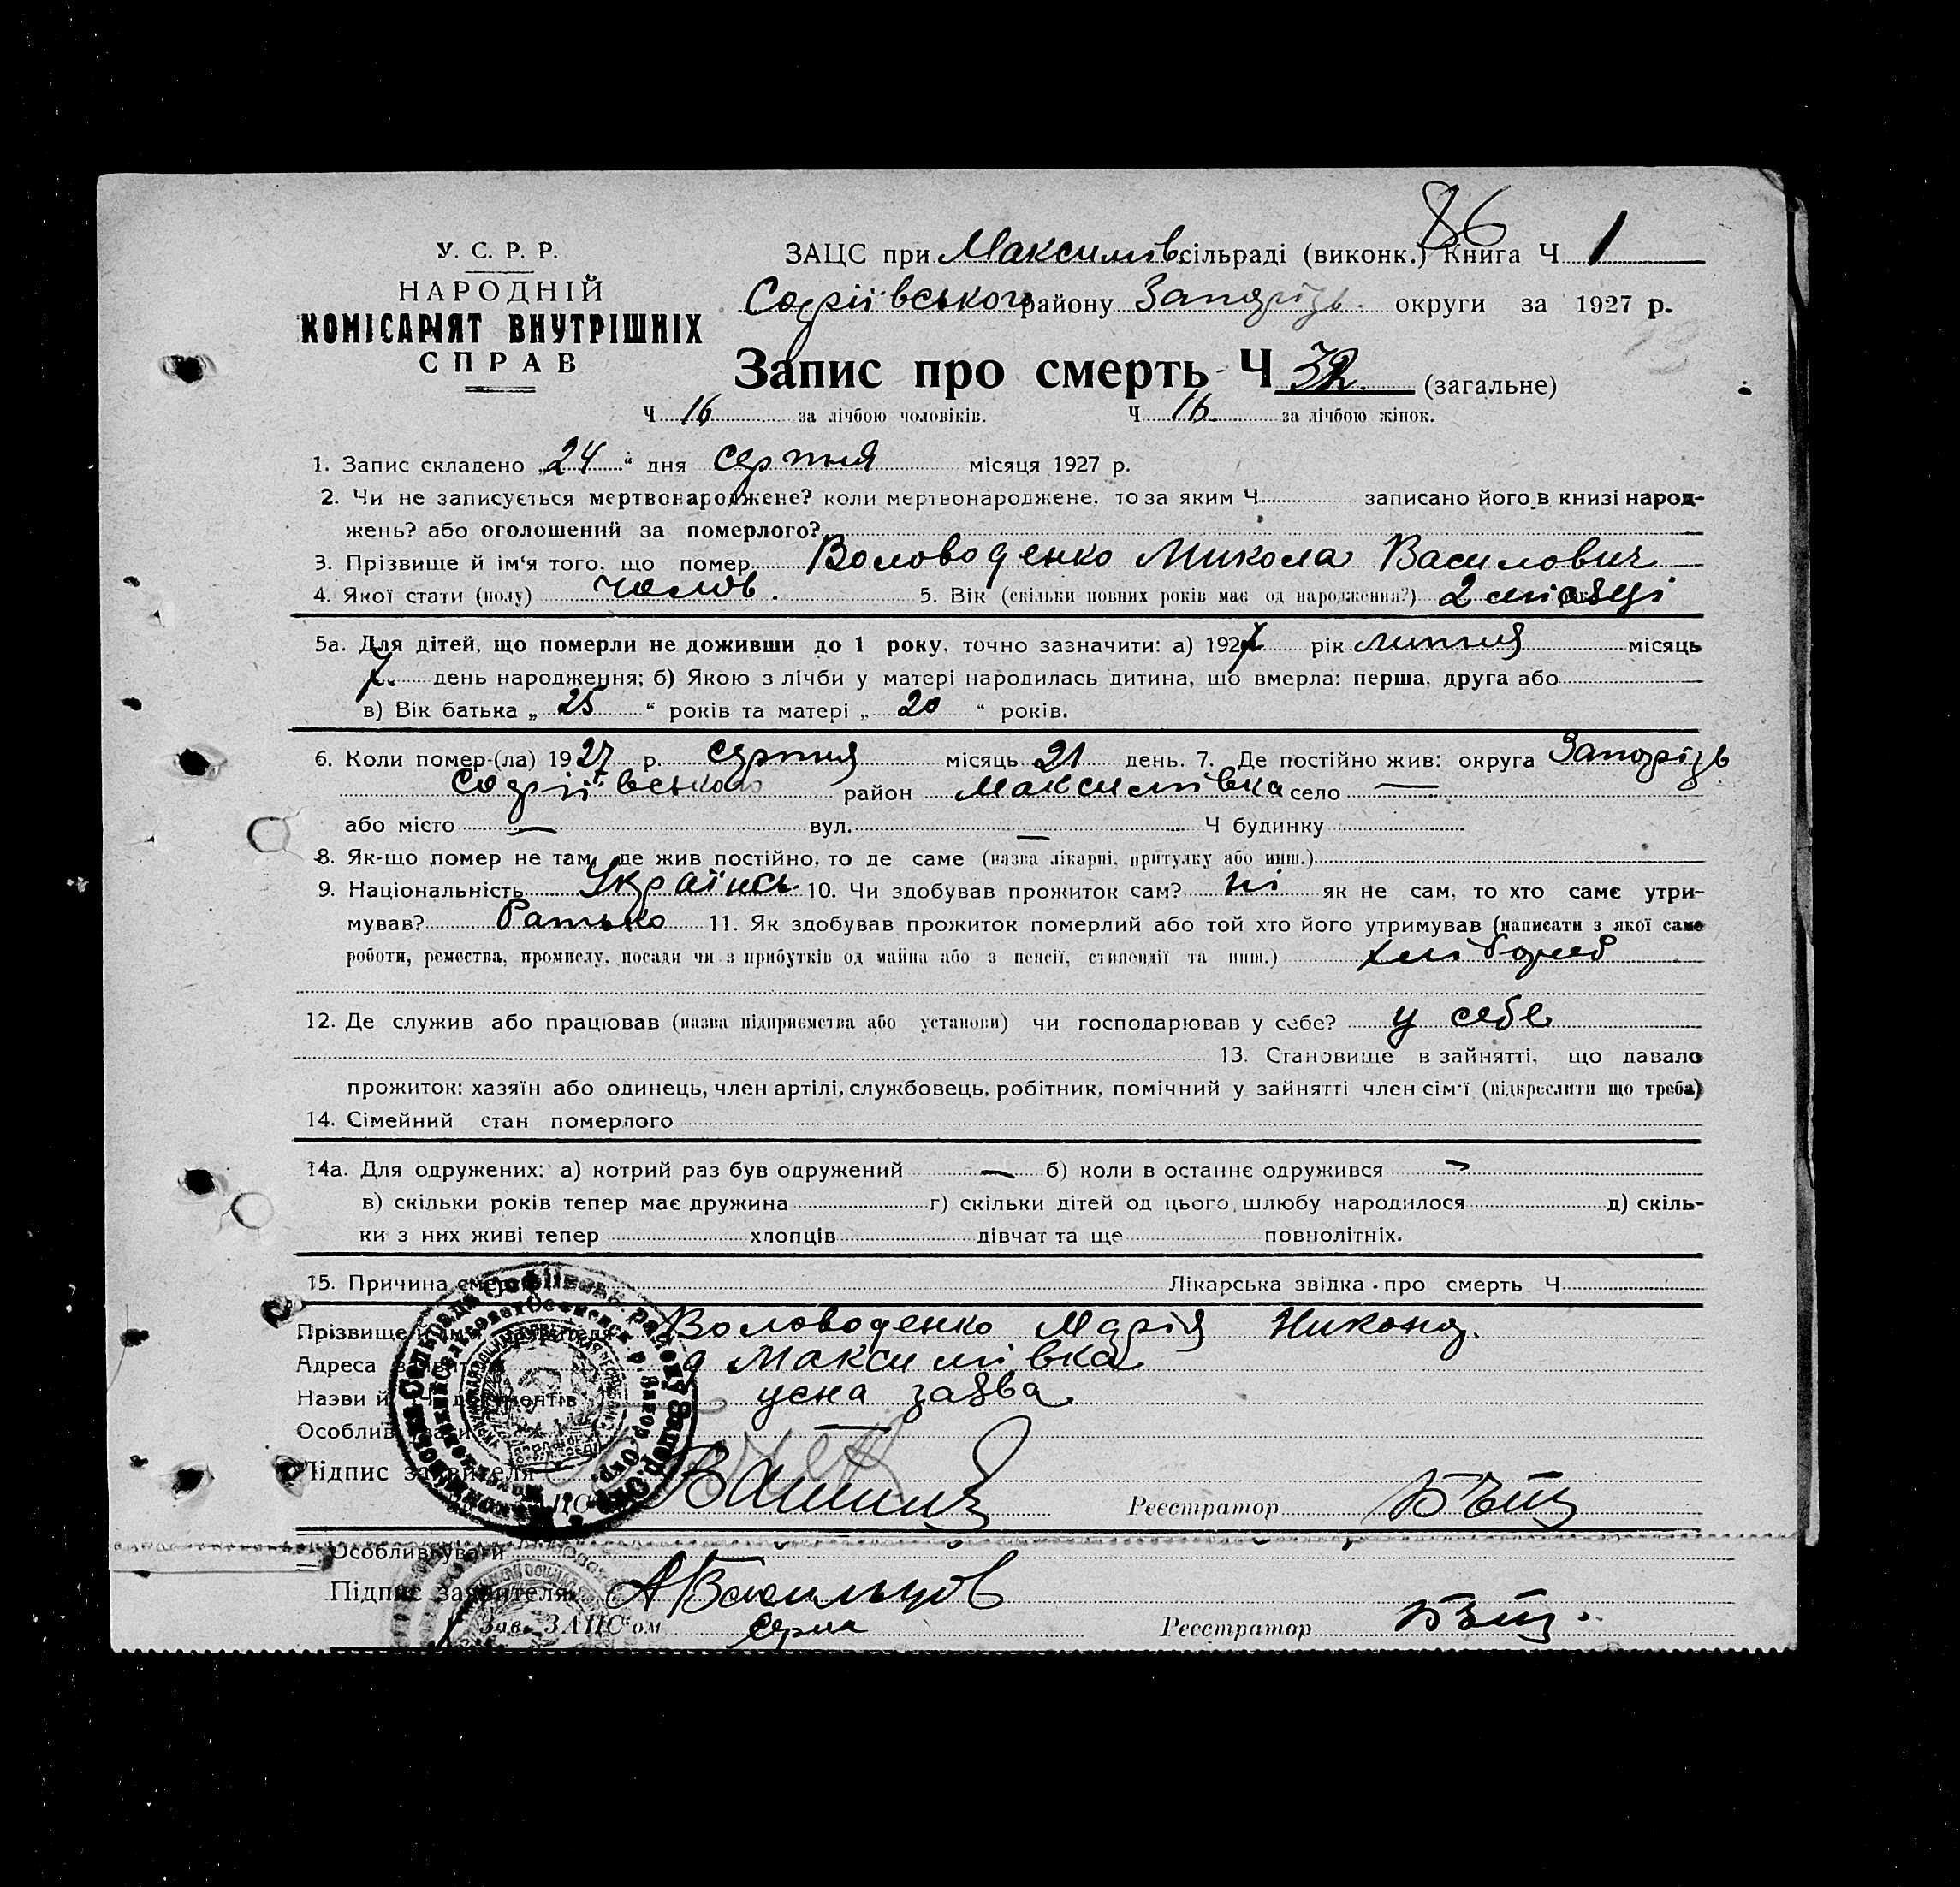 86
У. С. Р. Р.
НАРОДНІЙ
КОМІСАРІЯТ ВНУТРІШНІХ
СПРАВ
ЗАЦС при Максимів. сільраді (виконк.) Книга Ч 1
Софіївського району Запоріз. округи за 1927 р.
Запис про смерть Ч 32 (загальне)
Ч 16 за лічбою чоловіків. Ч 16 за лічбою жінок.
1. Запис складено „24“ дня серпня місяця 1927 р.
2. Чи не записується мертвонароджене? коли мертвонароджене, то за яким Ч записано його в книзі народ-
жень? або оголошений за померлого?
3. Прізвище й ім'я того, що помер Воловоденко Микола Василович
4. Якої стати (полу) чолов. 5. Вік (скільки повних років має од народження?) 2 місяці
5а. Для дітей, що померли не доживши до 1 року, точно зазначити: а) 1927 рік липня місяць
7. день народження; б) Якою з лічби у матері народилась дитина, що вмерла: перша, друга або
в) Вік батька „25“ років та матері „20“ років.
6. Коли помер-(ла) 1927 р. серпня місяць 21 день. 7. Де постійно жив: округа Запоріз
Софіївського район Максимівка село —
або місто — вул. — Ч будинку
8. Як-що помер не там, де жив постійно, то де саме (назва лікарні, притулку або инш.)
9. Національність Українсь. 10. Чи здобував прожиток сам? ні як не сам, то хто саме утри-
мував? Батько 11. Як здобував прожиток померлий або той хто його утримував (написати з якої саме
роботи, ремества, промислу, посади чи з прибутків од майна або з пенсії, стипендії та инш.) хлібороб
12. Де служив або працював (назва підприємства або установи) чи господарював у себе? у себе
13. Становище в зайнятті, що давало
прожиток: хазяїн або одинець, член артілі, службовець, робітник, помічний у зайнятті член сім'ї (підкреслити що треба)
14. Сімейний стан померлого
14а. Для одружених: а) котрий раз був одружений — б) коли в останнє одружився —
в) скільки років тепер має дружина г) скільки дітей од цього шлюбу народилося д) скіль-
ки з них живі тепер хлопців дівчат та ще повнолітніх.
15. Причина смерти Лікарська звідка про смерть Ч
Прізвище й ім'я заявителя Воловоденко Марія Никонд.
Адреса заявителя д Максимівка
Назви й Ч Ч документів усна заява
Особливі уваги —
Підпис заявителя
ЗАЦС Реєстратор
Особливі уваги
Підпис заявителя АВасильцов
Зав. ЗАЦС'ом Реєстратор